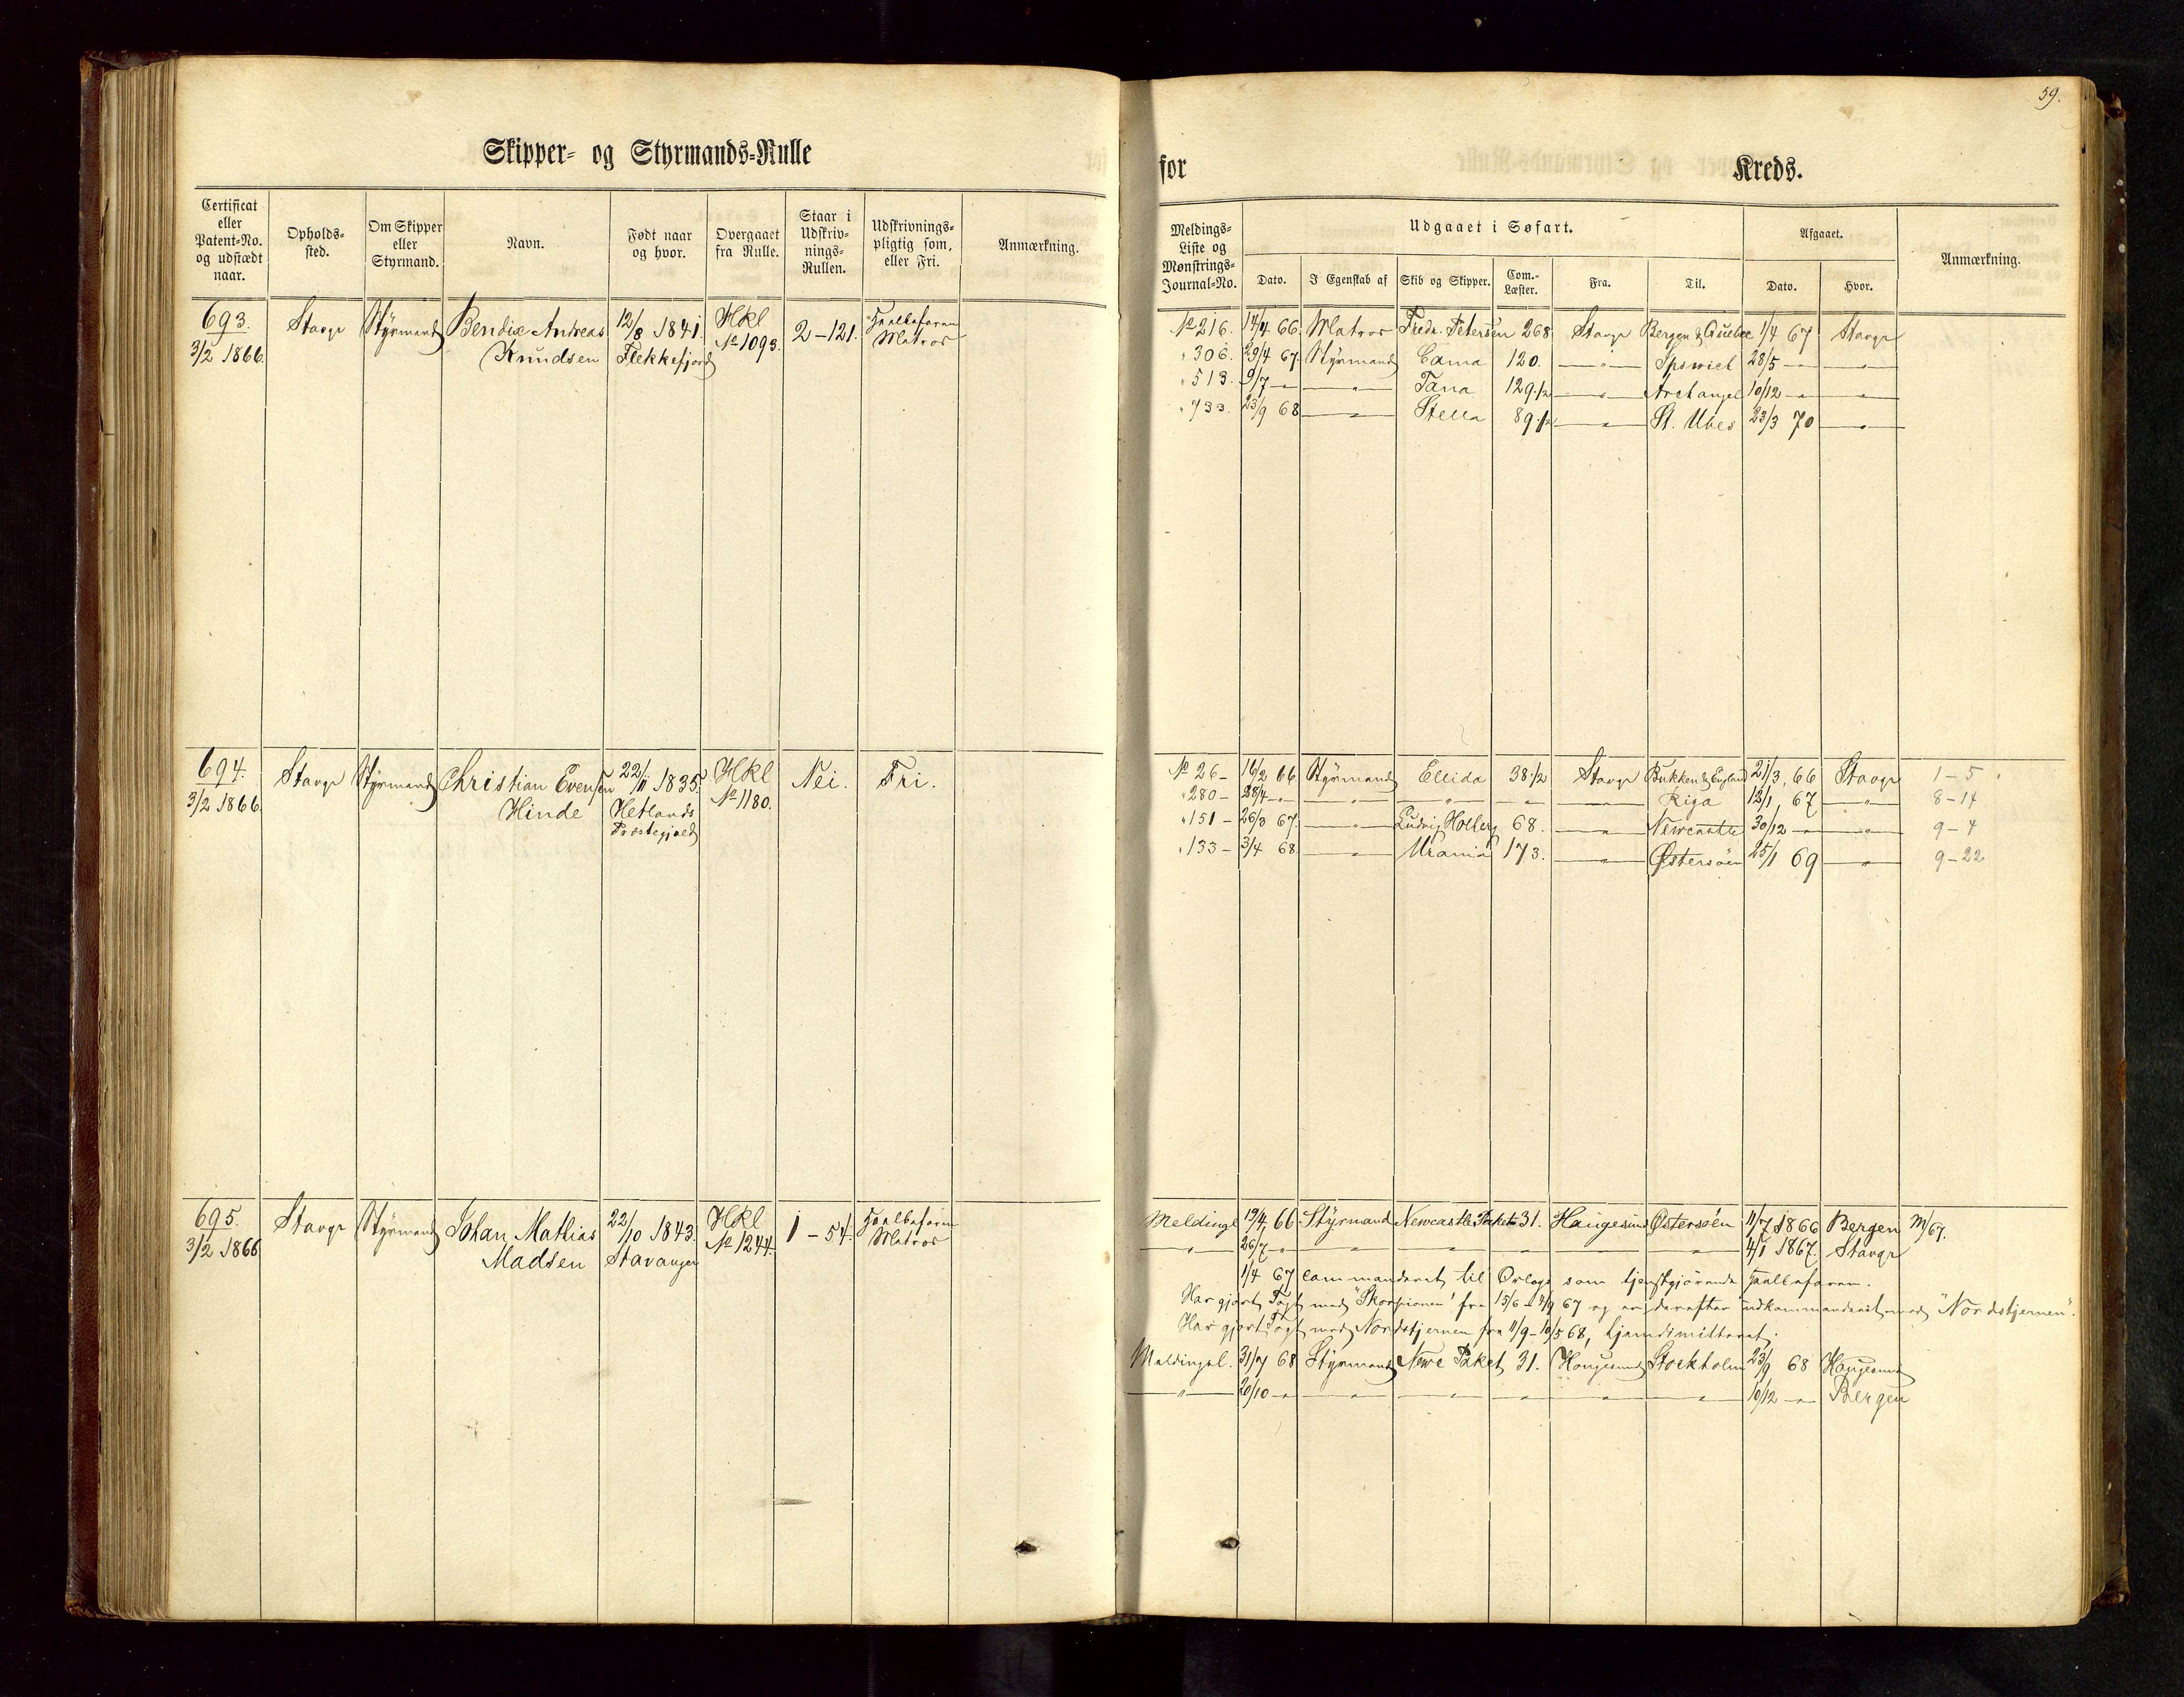 59.
Skipper- og Styrmands-Rulle
for Kreds.
Certificat eller Patent-No. og udstædt naar.
Opholds-sted.
Om Skipper eller Styrmand.
Navn.
Født naar og hvor.
Overgaaet fra Rulle.
Staar i Udskriv-nings-Rullen.
Udskrivnings-pligtig som, eller Fri.
Anmærkning.
Meldings-Liste og Mønstrings-Journal-No.
Udgaaet i Søfart.
Dato. I Egenskab af Skib og Skipper. Com.-Læster. Fra. Til.
Afgaaet.
Dato. Hvor.
Anmærkning.
693. Stavgr Styrmand Bendix Andreas 12/8 1841. Hkl 2-121. Fuldbefaren
3/2 1866. Knudsen Flekkefjord No 1093. Matros
No 216. 14/4 66. Matros Fredr. Petersen 268 Stavgr Bergen & Quebec 1/4 67 Stavgr
" 306. 29/4 67. Styrmand Cama 120. — " — Ipswich 28/5 — — " —
" 513. 9/7 — — " — Tana 129.1/2 — " — Archangel 10/12 — — " —
" 733. 23/9 68 — " — Stella 89.1/2 — " — St. Ubes 23/3 70 — " —
694. Stavgr Styrmand Christian Evensen 22/11 1835. Hkl Nei. Fri.
3/2 1866. Hinde Hetlands No 1180.
Præstegjæld
No 26 - 16/2 66 Styrmand Ellida 38.1/2 Stavgr Bukken & England 21/3, 66 Stavgr 1-5
" 280 - 28/4 — — " — — " — — " — — " — Riga 12/1, 67 — " — 8-14
" 151 - 26/3 67. — " — Ludvig Holberg 68. — " — Newcastle 30/12 — — " — 9-4
" 133 - 3/4 68 — " — Urania 173. — " — Østersøen 25/1 69 — " — 9-22
695. Stavgr Styrmand Johan Mathias 22/10 1843. Hkl 1-54. Fuldbefaren
3/2 1866 Madsen Stavanger No 1244. Matros
Meldingsl 19/4, 66 Styrmand Newcastle Paket 31. Haugesund Østersøen 11/7 1866 Bergen M/67.
— " — 26/7 — — " — — " — — " — — " — — " — 4/1 1867. Stavgr
1/4 67 commanderet til Orlogs som tjenstgjørende Fuldbefaren.
Har gjort Togt med "Skorpionen" fra 15/6 - 4/9 67 og er derefter udkommanderet med "Nordstjernen".
Har gjort Togt med Nordstjernen fra 11/9 - 10/5 68, hjemdimitteret.
Meldingsl. 31/7 68 Styrmand Newc Paket 31. Haugesund Stockholm 23/9 68 Haugesund
— " — 20/10 — — " — — " — — " — — " — — " — 10/12 — Bergen